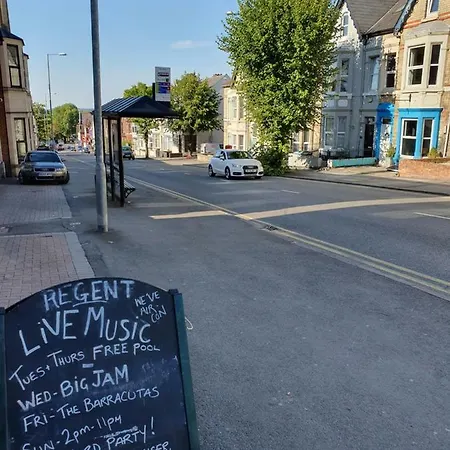 REGENT
WE'VE
AIR
CON
LiVE MUSiC
TUES + THURS FREE POOL
WED - BIG JAM
FRI - THE BARRACUTAS
SUN - 2PM - 11PM
PARTY!